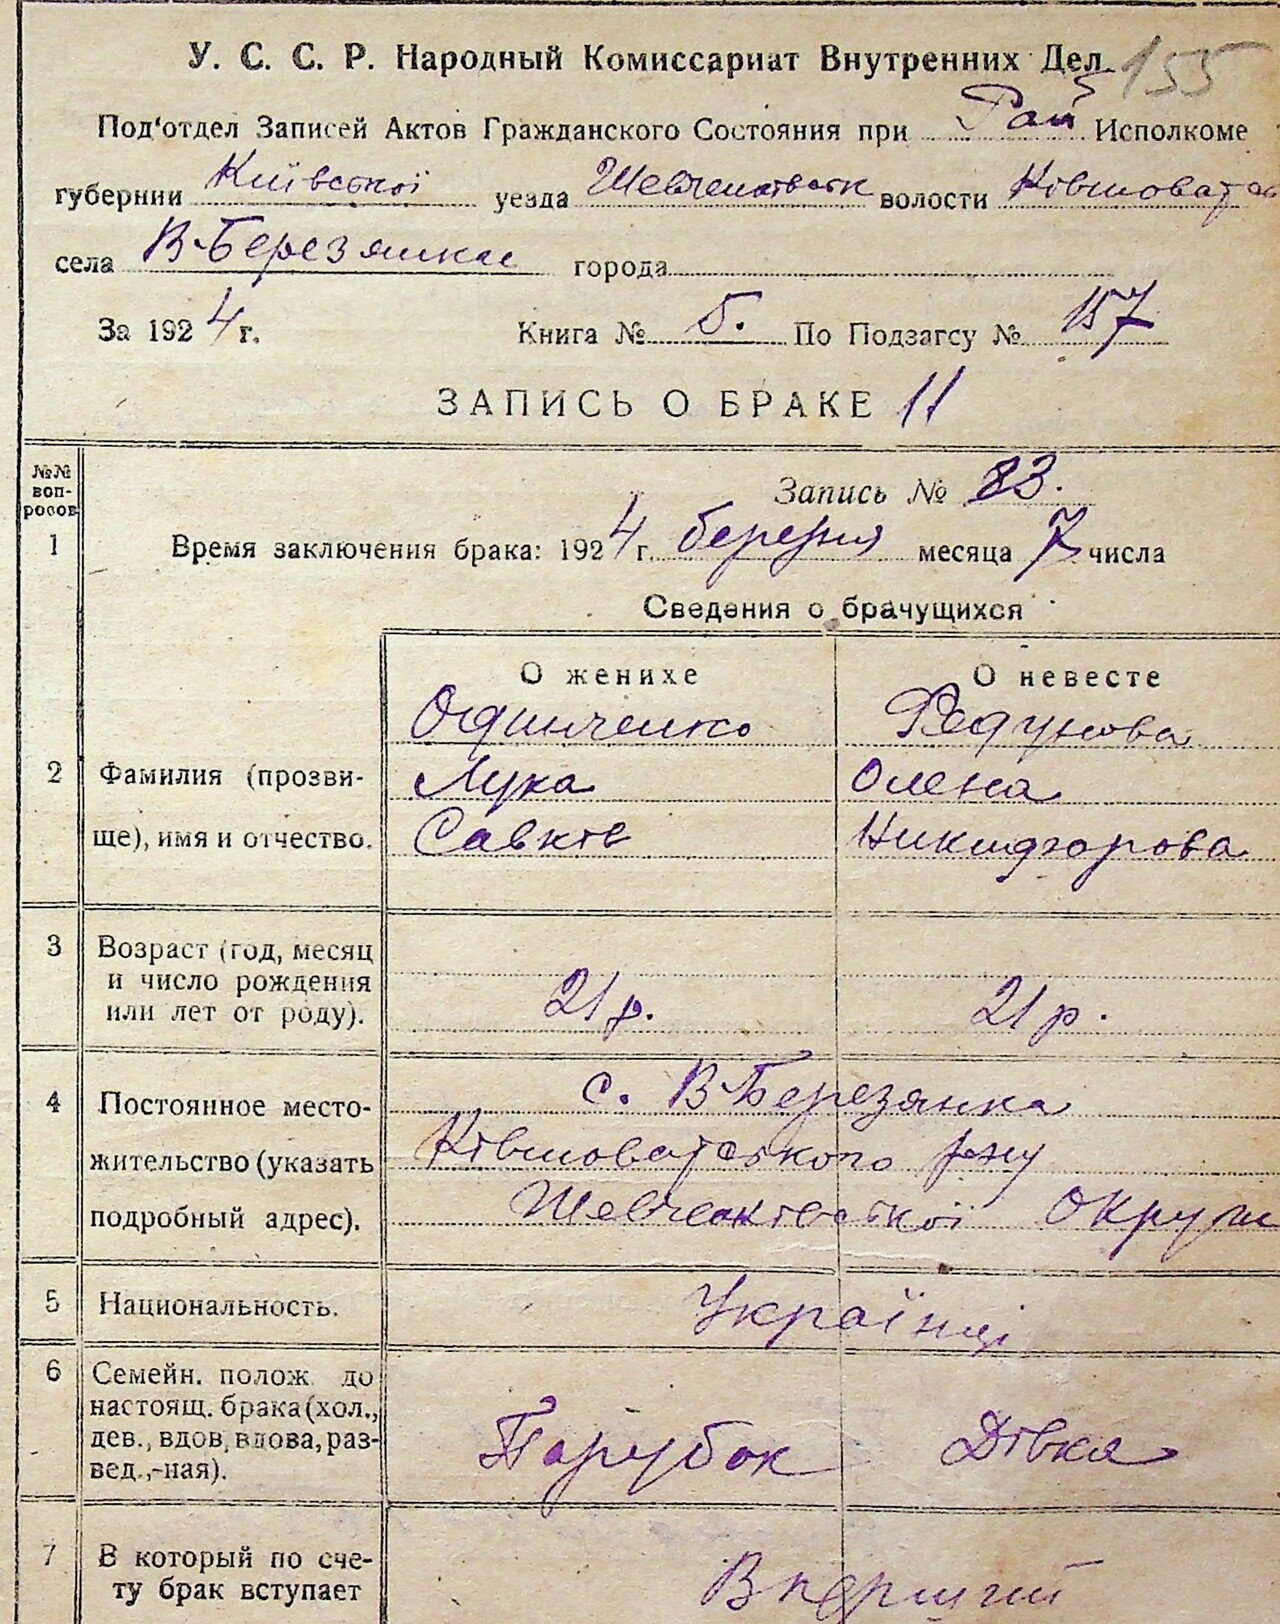 У. С. С. Р. Народный Комиссариат Внутренних Дел 155
Под'отдел Записей Актов Гражданского Состояния при Рай Исполкоме
губернии Київської уезда Шевченківськ волости Ківшоватсь
села В-Березянка города
За 1924 г. Книга № 5. По Подзагсу № 157
ЗАПИСЬ О БРАКЕ 11
№№ вопросов
Запись № 83.
1 Время заключения брака: 1924 г. березня месяца 7 числа
Сведения о брачущихся
О женихе О невесте
Одинченко Федунова
2 Фамилия (прозви- Лука Олена
ще), имя и отчество. Савків Никифорова
3 Возраст (год, месяц
и число рождения
или лет от роду). 21 р. 21 р.
с. В-Березянка
4 Постоянное место-
жительство (указать Ківшоватського р-ну
подробный адрес). Шевченківської Округи
5 Национальность. Українці
6 Семейн. полож. до
настоящ. брака (хол.,
дев., вдов, вдова, раз- Парубок Дівка
вед.,-ная).
7 В который по сче-
ту брак вступает Вперший